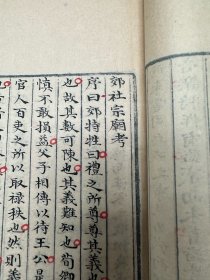 郊社宗廟考
序曰郊特牲曰禮之所尊尊其義
也故其數可陳也其義難知也荀卿
慎不敢損益父子相傳以待王公是
官人百吏之所以取祿秩也然則義